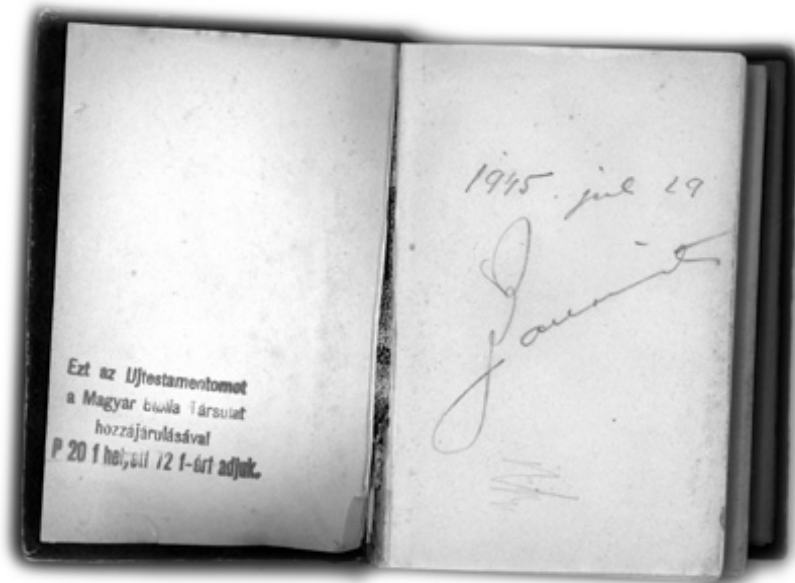 Ezt az Ujtestamentomot
a Magyar Biblia Társulat
hozzájárulásával
P 20 f helyett 72 f-ért adjuk.
1945. jul 29